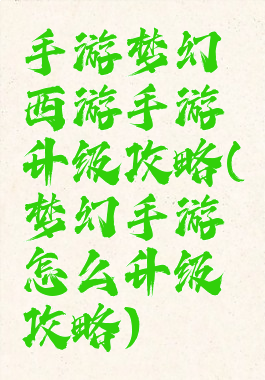 手游梦幻
西游手游
升级攻略(
梦幻手游
怎么升级
攻略)